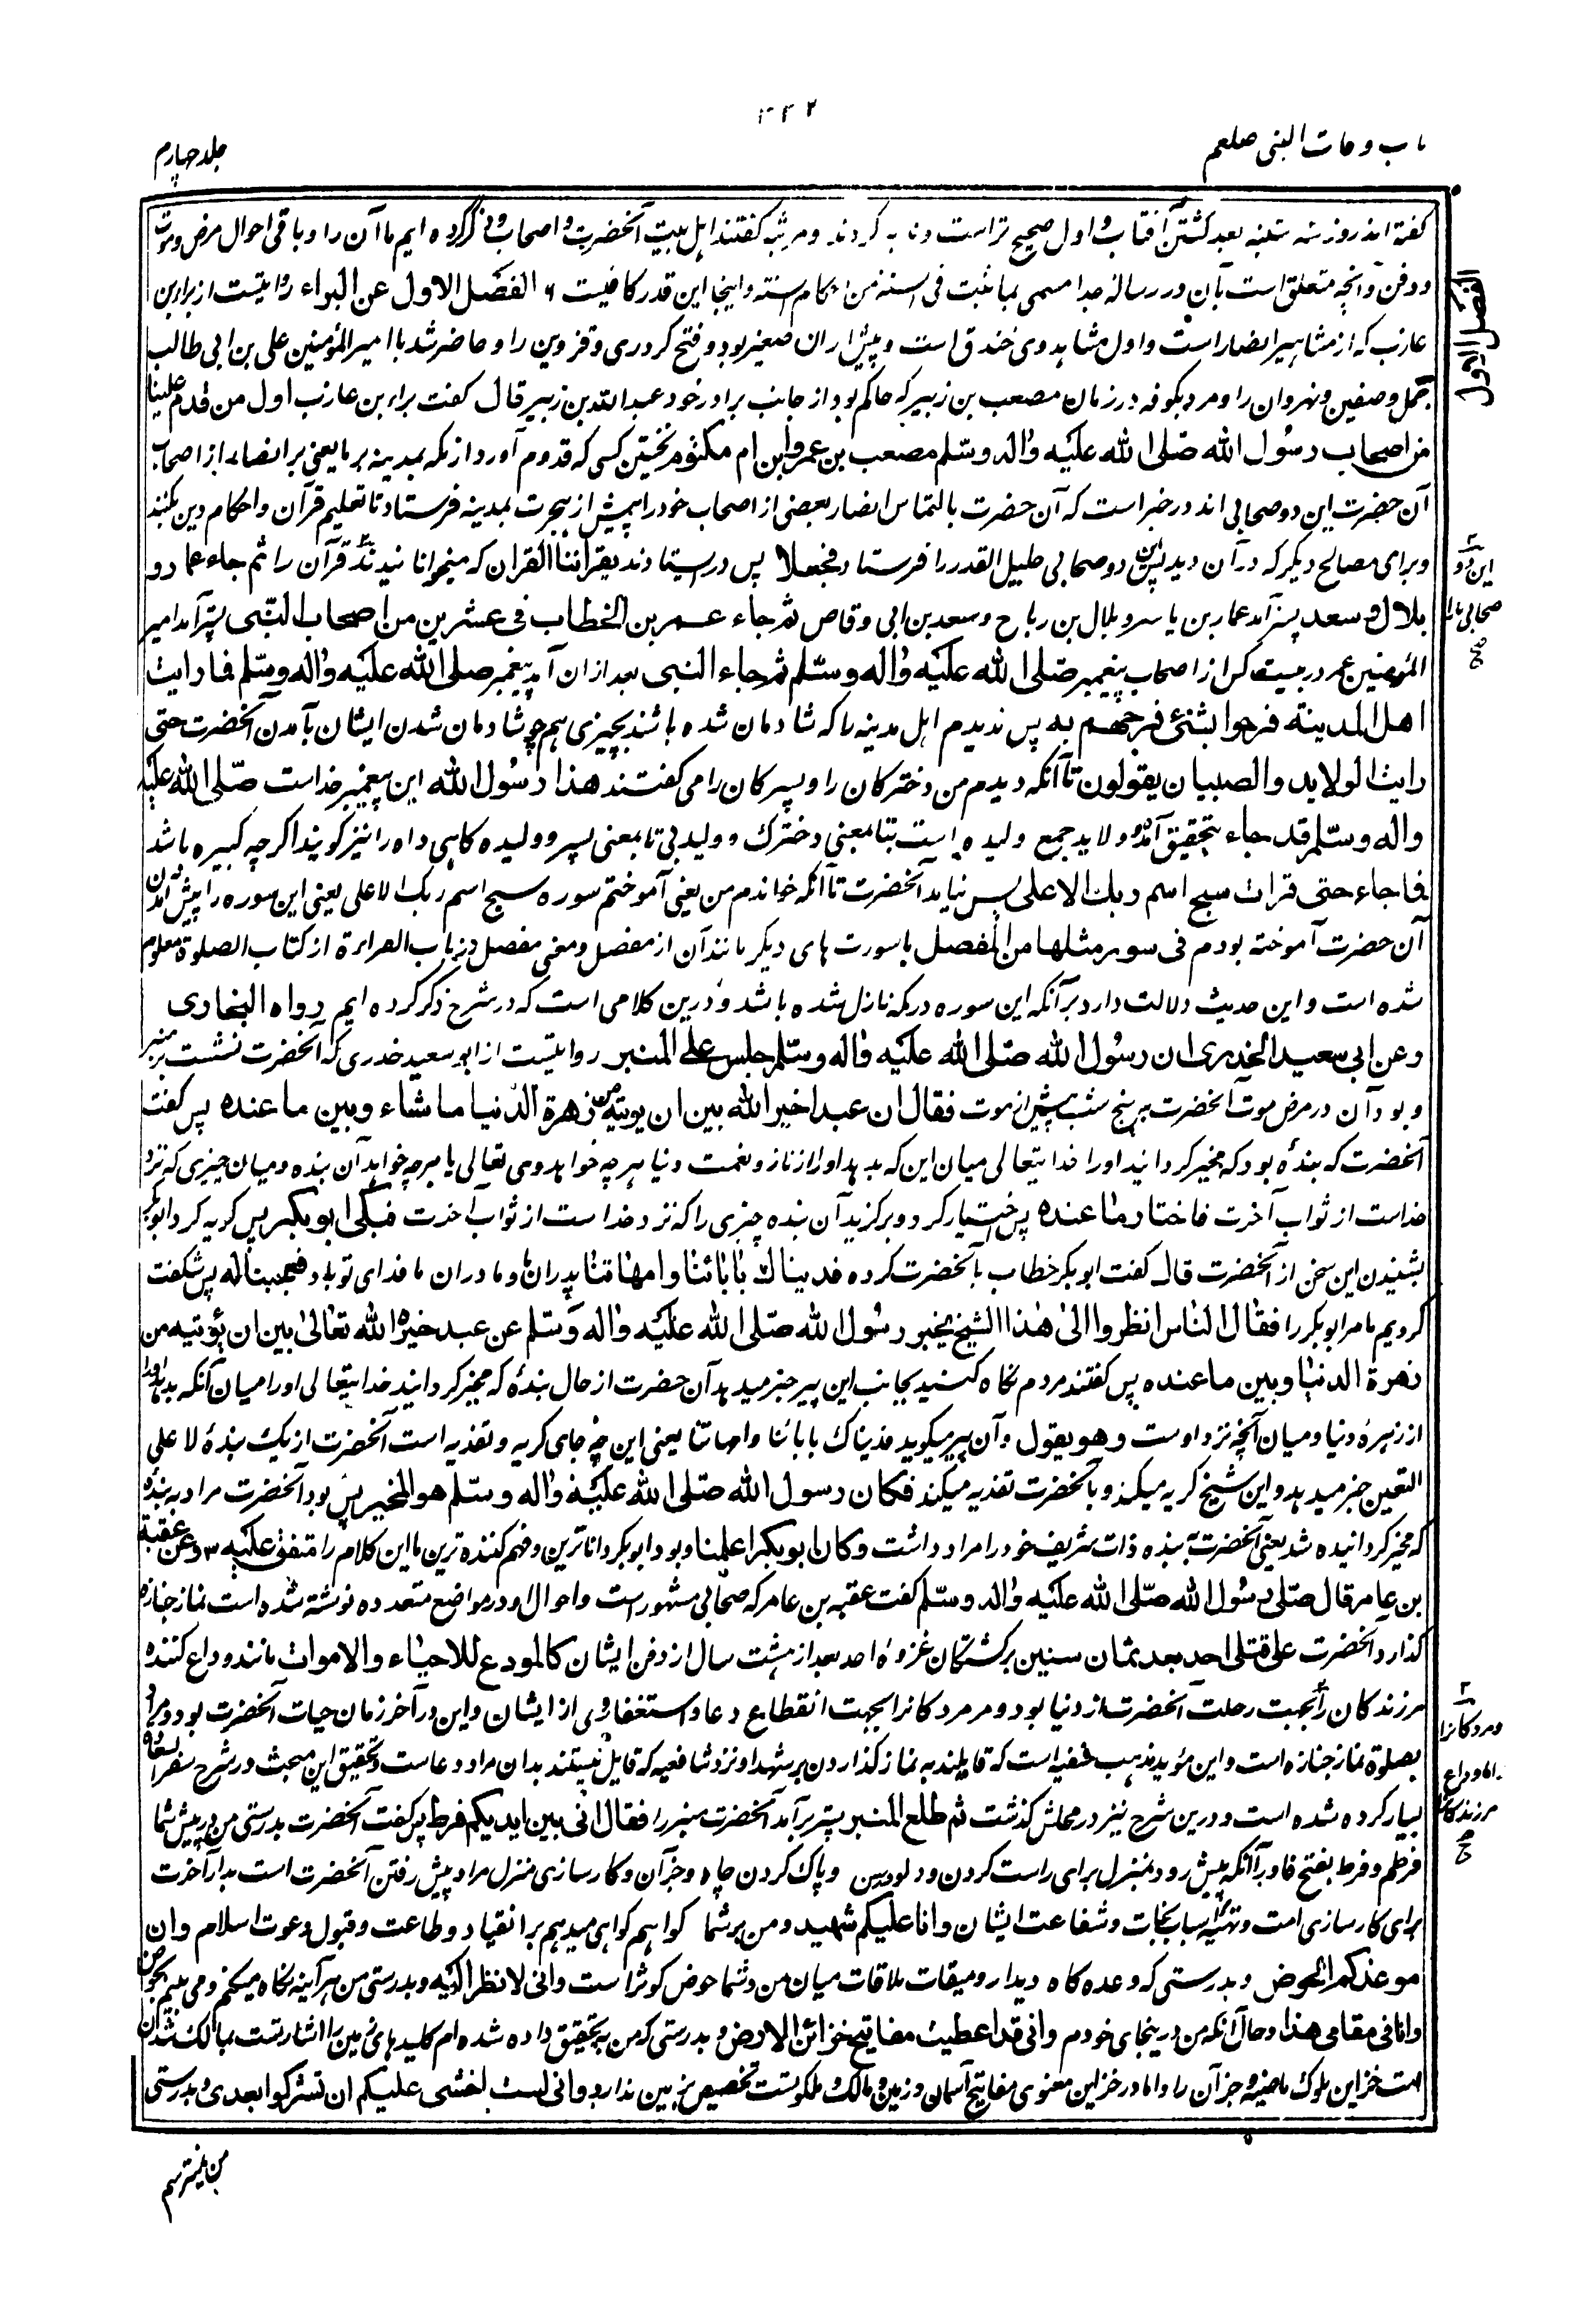 باب وفات النبی صلعم
جلد چهارم
گفته اند روز سه شنبه بعد گشتن آفتاب و اول صحیح تر است و ندبه کردند و مرثیه گفتند اهل بیت آنحضرت و اصحاب و ذکر کرده ایم ما آن را و باقی احوال مرض و موت
و دفن و آنچه متعلق است بآن در رساله جدا مسمی بما ثبت فی السنه من احکام السنه و اینجا این قدر کافیست ۶ الفصل الاول عن البراء روایتست از براء بن
عازب که از مشاهیر انصار است و اول مشاهد وی خندق است و پیش از ان صغیر بود و فتح کرد ری و قزوین را و حاضر شد با امیر المؤمنین علی بن ابی طالب
جمل و صفین و نهروان را و مرد بکوفه در زمان مصعب بن زبیر که حاکم بود از جانب برادر خود عبد الله بن زبیر قال گفت براء بن عازب اول من قدم علینا
من اصحاب رسول الله صلی الله علیه واله وسلم مصعب بن عمیر وابن ام مکتوم نخستین کسی که قدوم آورد از مکه بمدینه بر ما یعنی بر انصار از اصحاب
آن حضرت این دو صحابی اند در خبر است که آن حضرت بالتماس انصار بعضی از اصحاب خود را پیش از هجرت بمدینه فرستاد تا تعلیم قرآن و احکام دین بکنند
و برای مصالح دیگر که در آن دید پس این دو صحابی جلیل القدر را فرستاد فجعلا پس در ایستادند یقراننا القران که میخوانانیدند قرآن را ثم جاء عمار و
بلال و سعد پستر آمد عمار بن یاسر و بلال بن رباح و سعد بن ابی وقاص ثم جاء عمر بن الخطاب فی عشرین من اصحاب النبی پستر آمد امیر
المؤمنین عمر در بیست کس از اصحاب پیغمبر صلی الله علیه واله وسلم ثم جاء النبی بعد ازان آمد پیغمبر صلی الله علیه واله وسلم فما رایت
اهل المدینة فرحوا بشئ فرحهم به پس ندیدم اهل مدینه را که شادمان شده باشند بچیزی هم چو شادمان شدن ایشان بآمدن آنحضرت حتی
رایت الولاید والصبیان یقولون تا آنکه دیدم من دخترکان را و پسرکان را می گفتند هذا رسول الله این پیغمبر خداست صلی الله علیه
واله وسلم قد جاء بتحقیق آمد و ولاید جمع ولیده است بتا بمعنی دخترک و ولید بی تا بمعنی پسر و ولیده گاهی داه را نیز گویند اگرچه کبیره باشد
فما جاء حتی قرات سبح اسم ربک الاعلی پس نیاید آنحضرت تا آنکه خواندم من یعنی آموختم سوره سبح اسم ربک الاعلی یعنی این سوره را پیش آمدن
آن حضرت آموخته بودم فی سور مثلها من المفصل با سورت های دیگر مانند آن از مفصل و معنی مفصل در باب القراءة از کتاب الصلوة معلوم
شده است و این حدیث دلالت دارد بر آنکه این سوره در مکه نازل شده باشد و درین کلامی است که در شرح ذکر کرده ایم رواه البخاری
وعن ابی سعید الخدری ان رسول الله صلی الله علیه واله وسلم جلس علی المنبر روایتست از ابو سعید خدری که آنحضرت نشست بر منبر
و بود آن در مرض موت آنحضرت به پنج شب پیش از موت فقال ان عبدا خیره الله بین ان یوتیه من زهرة الدنیا ما شاء وبین ما عنده پس گفت
آنحضرت که بندهٔ بود که مخیر گردانید او را خدایتعالی میان این که بدهد او را از ناز و نعمت دنیا هرچه خواهد وی تعالی یا هرچه خواهد آن بنده و میان چیزی که نزد
خداست از ثواب آخرت فاختار ما عنده پس اختیار کرد و برگزید آن بنده چیزی را که نزد خداست از ثواب آخرت فبکی ابو بکر پس گریه کرد ابو بکر
بشنیدن این سخن از آنحضرت قال گفت ابو بکر خطاب بآنحضرت کرده فدیناک بابائنا وامهاتنا پدران ما و مادران ما فدای تو باد فعجبنا له پس شگفت
کردیم ما مر ابو بکر را فقال الناس انظروا الی هذا الشیخ یخبر رسول الله صلی الله علیه واله وسلم عن عبد خیره الله تعالی بین ان یؤتیه من
زهرة الدنیا وبین ما عنده پس گفتند مردم نگاه کنید بجانب این پیر خبر میدهد آن حضرت از حال بندهٔ که مخیر گردانید خدایتعالی او را میان آنکه بدهد او را
از زهرهٔ دنیا و میان آنچه نزد اوست وهو یقول و آن پیر میگوید فدیناک بابائنا وامهاتنا یعنی این چه جای گریه و تفدیه است آنحضرت از یک بندهٔ لا علی
التعین خبر میدهد و این شیخ گریه میکند و بآنحضرت تفدیه میکند فکان رسول الله صلی الله علیه واله وسلم هو المخیر پس بود آنحضرت مراد به بندهٔ
که مخیر گردانیده شد یعنی آنحضرت به بنده ذات شریف خود را مراد داشت وکان ابو بکر اعلمنا و بود ابو بکر داناترین و فهم کننده ترین ما این کلام را متفق علیه ۳ وعن عقبة
بن عامر قال صلی رسول الله صلی الله علیه واله وسلم گفت عقبه بن عامر که صحابی مشهور است و احوال او در مواضع متعدده نوشته شده است نماز جنازه
گذارد آنحضرت علی قتلی احد بعد ثمان سنین بر کشتگان غزوهٔ احد بعد از هشت سال از دفن ایشان کالمودع للاحیاء والاموات مانند وداع کننده
مرزندگان را بجهت رحلت آنحضرت از دنیا بود و مر مردگانرا بجهت انقطاع دعا و استغفار وی از ایشان و این در آخر زمان حیات آنحضرت بود و مراد
بصلوة نماز جنازه است و این مؤید مذهب حنفیه است که قایلند به نماز گذاردن بر شهدا و نزد شافعیه که قایل نیستند بدان مراد دعاست و تحقیق این مبحث در شرح سفر السعادة
بسیار کرده شده است و درین شرح نیز در محلش گذشت ثم طلع المنبر پستر برآمد آنحضرت منبر را فقال انی بین ایدیکم فرط پس گفت آنحضرت بدرستی من در پیش شما
فرطم و فرط بفتح فا و را آنکه پیش رود بمنزل برای راست کردن و دلو ورسن و پاک کردن چاه و جز آن و کارسازی منزل مراد پیش رفتن آنحضرت است بدار آخرت
برای کارسازی امت و تهیهٔ اسباب نجات و شفاعت ایشان وانا علیکم شهید و من بر شما گواهم گواهی میدهم بر انقیاد و طاعت و قبول دعوت اسلام وان
موعدکم الحوض و بدرستی که وعده گاه دیدار و میقات ملاقات میان من و شما حوض کوثر است وانی لانظر الیه و بدرستی من هرآینه نگاه میکنم و می بینم بحوض
وانا فی مقامی هذا و حال آنکه من در ینجای خودم وانی قد اعطیت مفاتیح خزائن الارض و بدرستی که من بتحقیق داده شده ام کلید های زمین را اشارتست بمالک شدن
امت خزاین ملوک ماضیه و جز آن را و اما در خزاین معنوی مفاتیح آسمان و زمین و مالک و ملکوتست تخصیص بزمین ندارد وانی لست اخشی علیکم ان تشرکوا بعدی و بدرستی
من نمیترسم
الفصل الاول
این دو
صحابی را
صح
ومردگانرا
صح